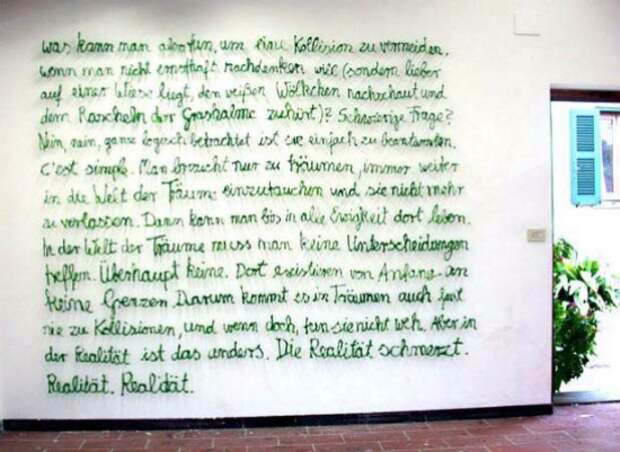 was kann man also tun, um eine Kollision zu vermeiden,
wenn man nicht ernsthaft nachdenken will (sondern lieber
auf einer Wiese liegt, den weißen Wölkchen nachschaut und
dem Rascheln der Grashalme zuhört)? Schwierige Frage?
Nein, nein, ganz logisch betrachtet ist sie einfach zu beantworten.
C'est simple. Man braucht nur zu träumen, immer weiter
in die Welt der Träume einzutauchen und sie nicht mehr
zu verlassen. Dann kann man bis in alle Ewigkeit dort leben.
In der Welt der Träume muss man keine Unterscheidungen
treffen. Überhaupt keine. Dort existieren von Anfang an
keine Grenzen. Darum kommt es in Träumen auch fast
nie zu Kollisionen, und wenn doch, tun sie nicht weh. Aber in
der Realität ist das anders. Die Realität schmerzt.
Realität. Realität.